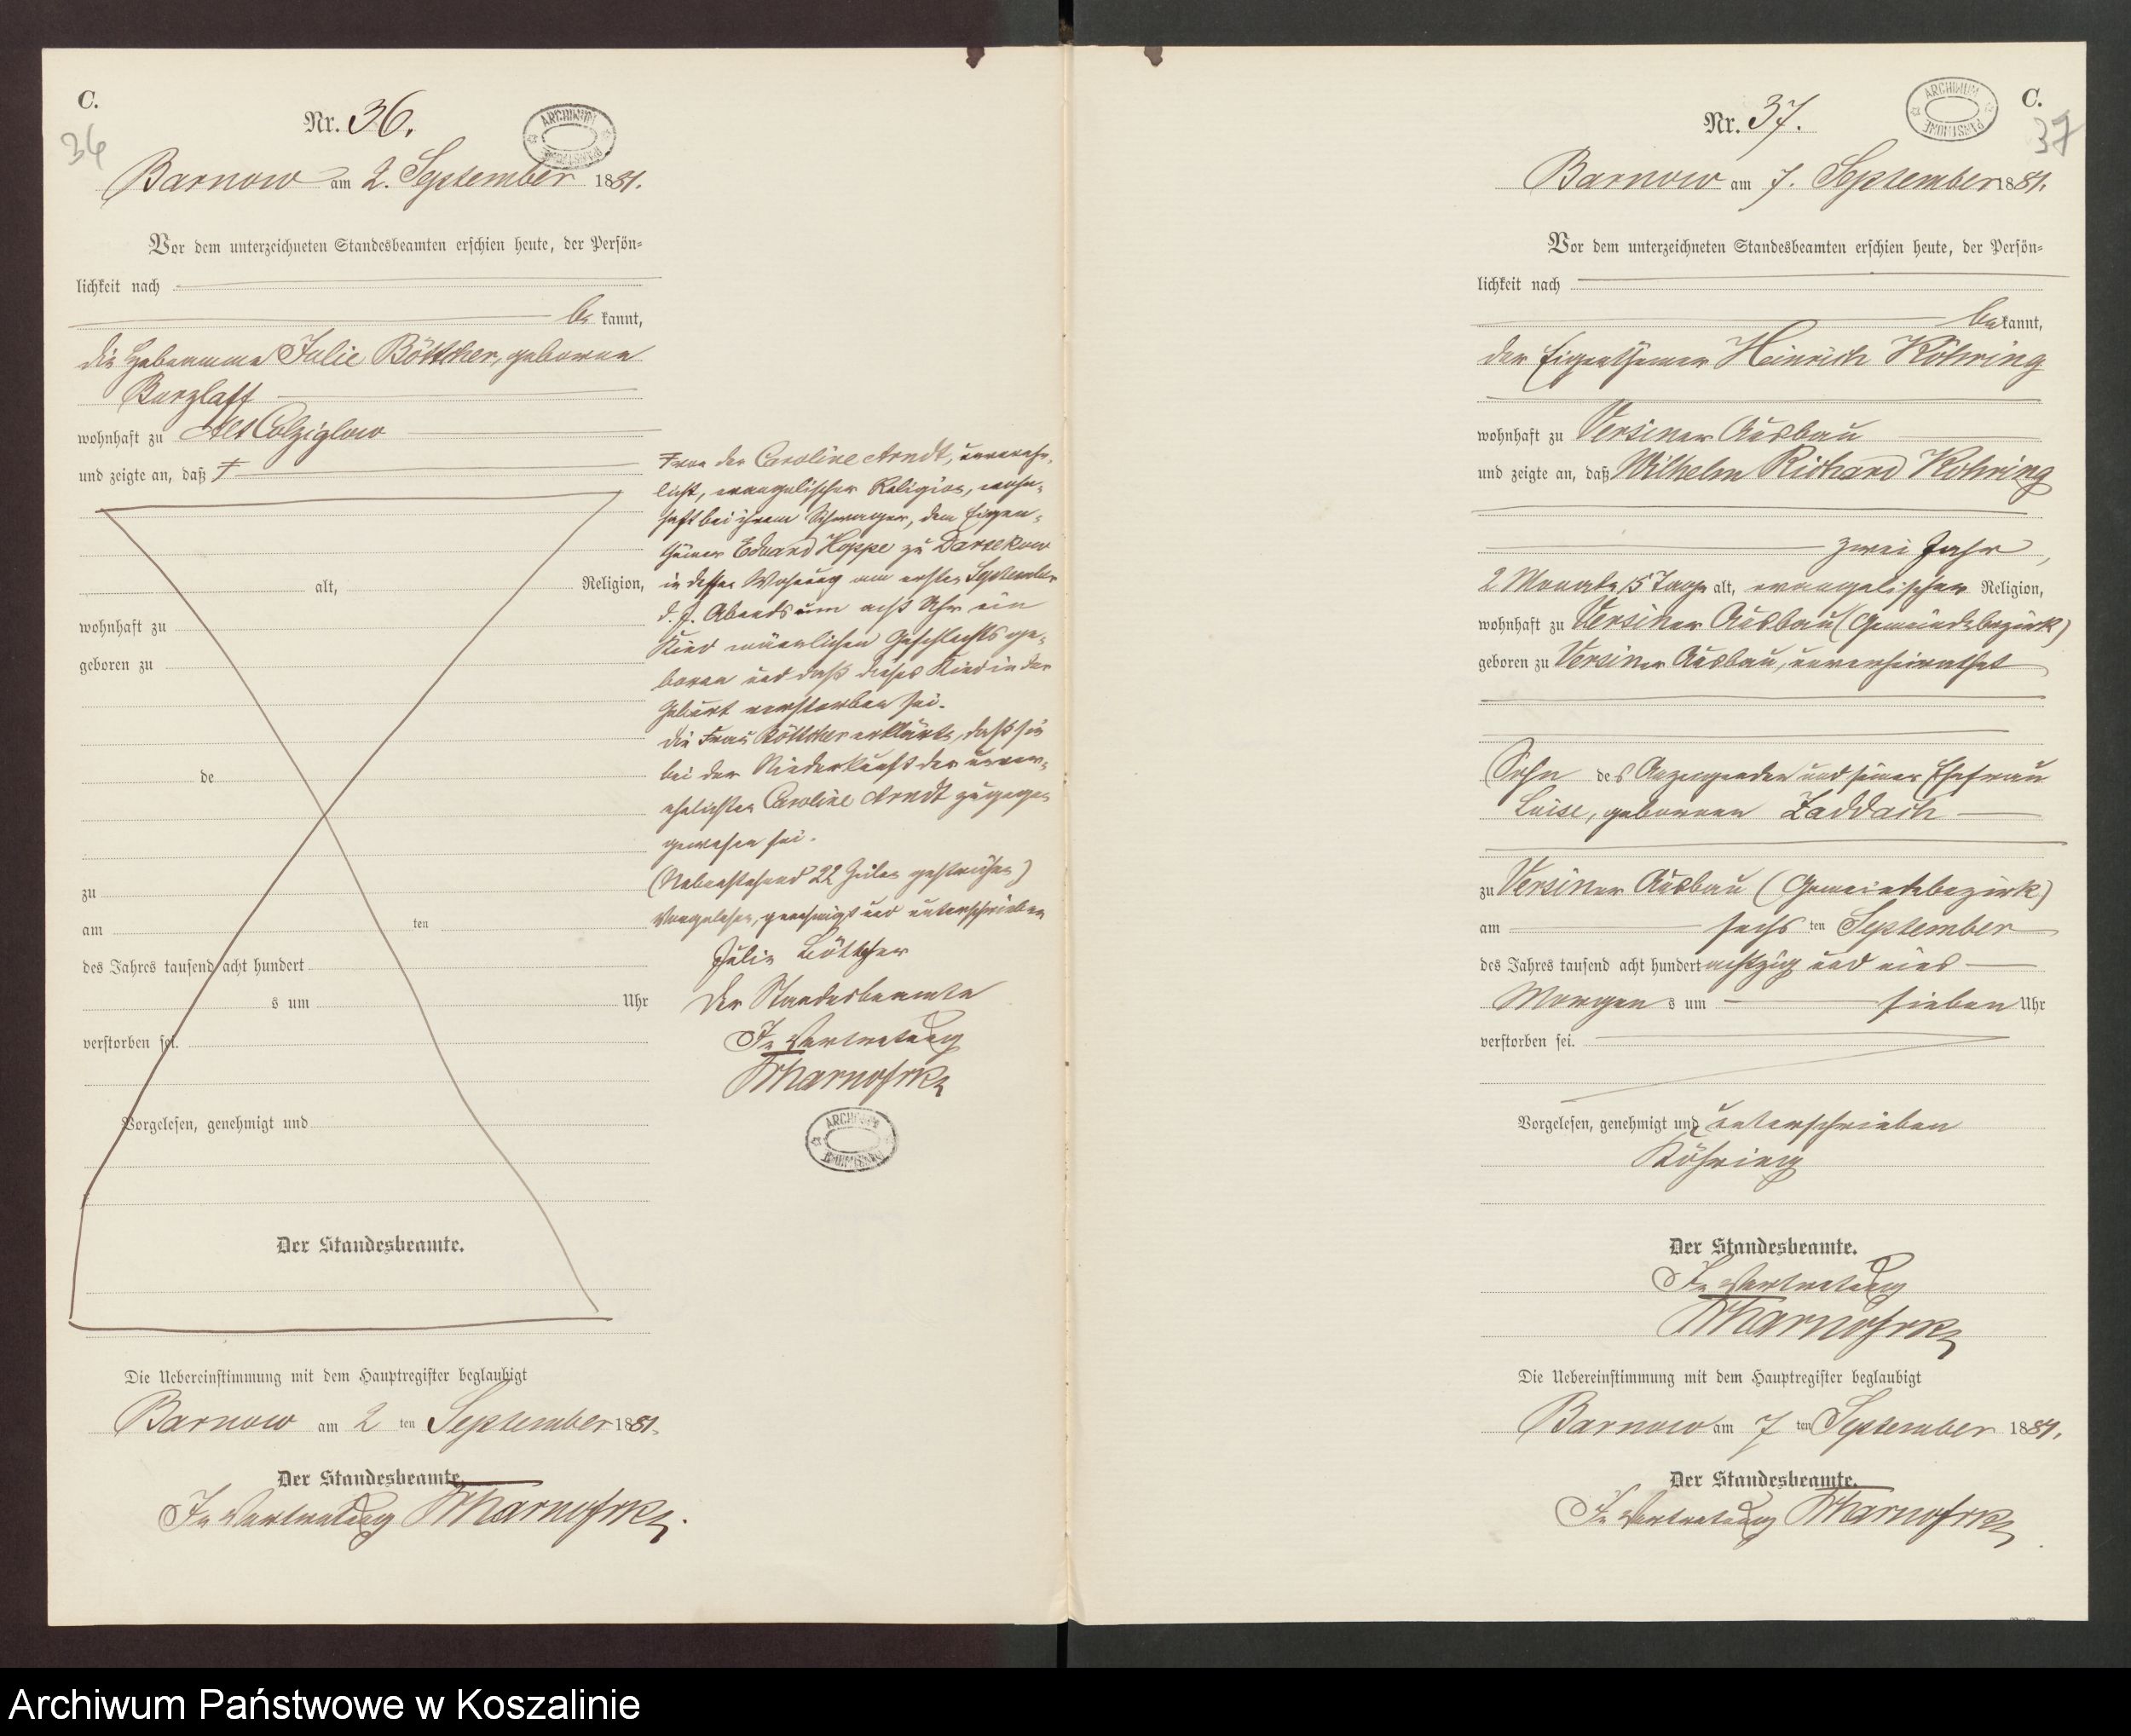 C.
36
Nr. 36.
ARCHIWUM PAŃSTWOWE
Barnow am 2. September 1881.
Vor dem unterzeichneten Standesbeamten erschien heute, der Persön-
lichkeit nach
be kannt,
die Hebeamme Julie Böttcher, geborene
Barzlaff
wohnhaft zu Alt Colziglow
und zeigte an, daß ‡
alt, Religion,
wohnhaft zu
geboren zu
de
zu
am ten
des Jahres tausend acht hundert
s um Uhr
verstorben sei.
Vorgelesen, genehmigt und
Der Standesbeamte.
‡ von der Caroline Arndt, unverehe-
licht, evangelischer Religion, wohn-
haft bei ihrem Schwager, dem Eigen-
thümer Eduard Hoppe zu Darsekow
in dessen Wohnung am ersten September
d. J. Abends um acht Uhr ein
Kind männlichen Geschlechts ge-
boren und daß dieses Kind in der
Geburt verstorben sei.
Die Frau Böttcher erklärte, daß sie
bei der Niederkunft der unver-
ehelichten Caroline Arndt zugegen
gewesen sei.
(Nebenstehend 22 Zeilen gestrichen)
Vorgelesen, genehmigt und unterschrieben
Julie Böttcher
Der Standesbeamte
In Vertretung
ARCHIWUM PAŃSTWOWE
Die Uebereinstimmung mit dem Hauptregister beglaubigt
Barnow am 2 ten September 1881.
Der Standesbeamte.
In Vertretung
C.
37
Nr. 37.
ARCHIWUM PAŃSTWOWE
Barnow am 7. September 1881.
Vor dem unterzeichneten Standesbeamten erschien heute, der Persön-
lichkeit nach
be kannt,
der Eigenthümer Heinrich Köhring
wohnhaft zu Versiner Ausbau
und zeigte an, daß Wilhelm Richard Köhring
zwei Jahr,
2 Monate 15 Tage alt, evangelischer Religion,
wohnhaft zu Versiner Ausbau (Gemeindebezirk)
geboren zu Versiner Ausbau, unverheirathet
Sohn des Anzeigenden und seiner Ehefrau
Luise, geborenen Zaddach
zu Versiner Ausbau (Gemeindebezirk)
am sechs ten September
des Jahres tausend acht hundert achtzig und eins
Morgen s um sieben Uhr
verstorben sei.
Vorgelesen, genehmigt und unterschrieben
Köhring
Der Standesbeamte.
In Vertretung
Die Uebereinstimmung mit dem Hauptregister beglaubigt
Barnow am 7 ten September 1881.
Der Standesbeamte.
In Vertretung
Archiwum Państwowe w Koszalinie